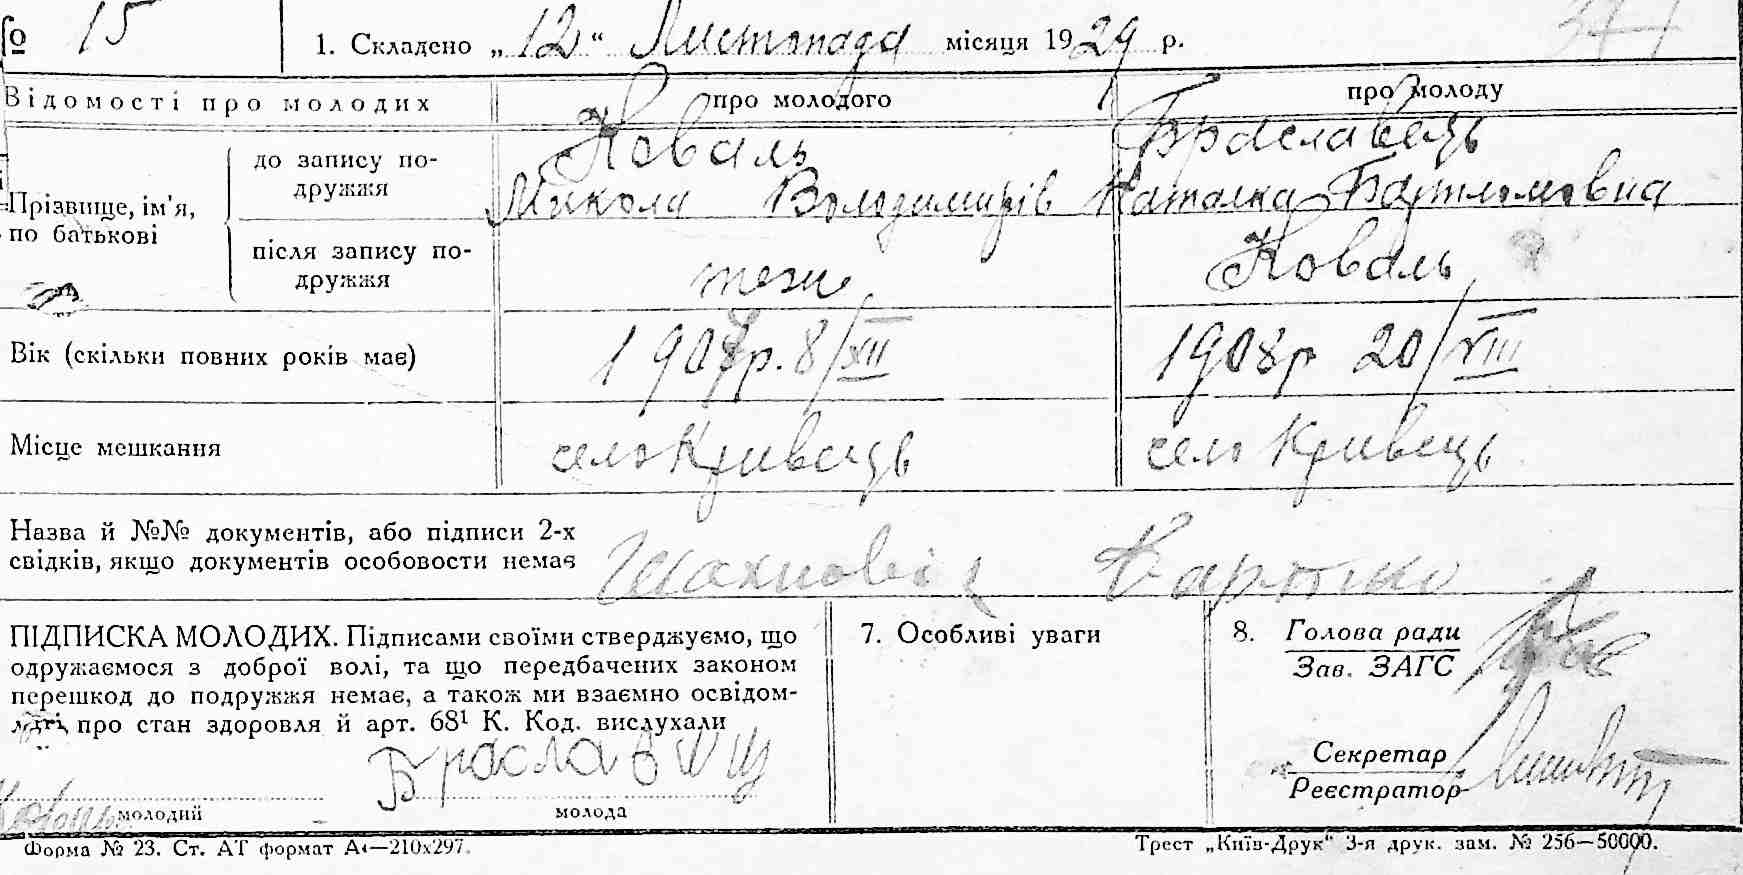 № 15
1. Складено „12“ Листопада місяця 1929 р.
Відомості про молодих про молодого про молоду
Прізвище, ім'я, по батькові
до запису подружжя
Коваль Браславець
Микола Володимирів Наталка Бартломовна
після запису подружжя
теж Коваль
Вік (скільки повних років має) 1908р. 8/XII 1908р 20/VIII
Місце мешкання село Кривець село Кривець
Назва й №№ документів, або підписи 2-х
свідків, якщо документів особовости немає
ПІДПИСКА МОЛОДИХ. Підписами своїми стверджуємо, що
одружаємося з доброї волі, та що передбачених законом
перешкод до подружжя немає, а також ми взаємно освідом-
лені про стан здоровля й арт. 68¹ К. Код. вислухали
молодий молода
7. Особливі уваги
8. Голова ради
Зав. ЗАГС
Секретар
Реєстратор
Форма № 23. Ст. АТ формат А4—210х297. Трест „Київ-Друк“ 3-я друк. зам. № 256—50000.